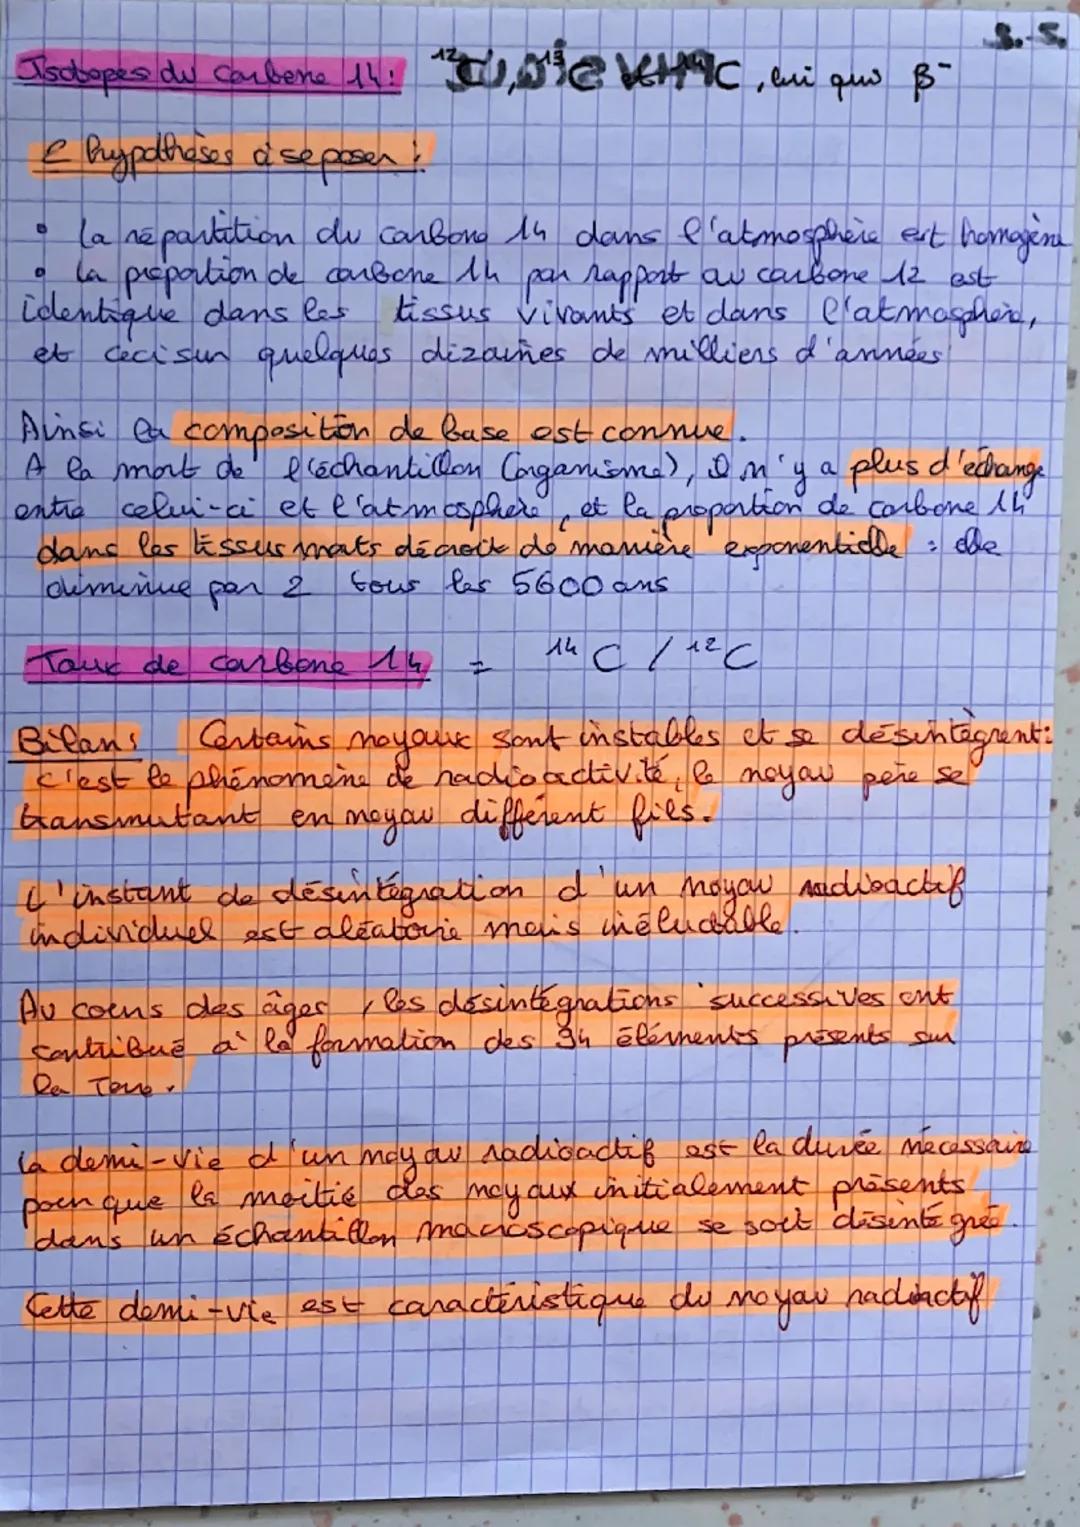 S.-S.
Isotopes du Carbone 14 : ¹²C, ¹³C ¹⁴C, qui β⁻
2 hypothèses à se poser :
• la répartition du carbone 14 dans l'atmosphère est homogène
• la proportion de carbone 14 par rapport au carbone 12 est
identique dans les tissus vivants et dans l'atmosphère,
et ceci sur quelques dizaines de milliers d'années
Ainsi la composition de base est connue.
A la mort de l'échantillon (organisme), il n'y a plus d'échange
entre celui-ci et l'atmosphère, et la proportion de carbone 14
dans les tissus morts décroit de manière exponentielle : elle
diminue par 2 tous les 5600 ans
Taux de carbone 14 = ¹⁴C / ¹²C
Bilan : Certains noyaux sont instables et se désintègrent :
c'est le phénomène de radioactivité, le noyau père se
transmutant en noyau différent fils.
L'instant de désintégration d'un noyau radioactif
individuel est aléatoire mais inéluctable.
Au cours des âges, les désintégrations successives ont
contribué à la formation des 94 éléments présents sur
la Terre.
La demi-vie d'un noyau radioactif est la durée nécessaire
pour que la moitié des noyaux initialement présents
dans un échantillon macroscopique se soit désintégrée.
Cette demi-vie est caractéristique du noyau radioactif